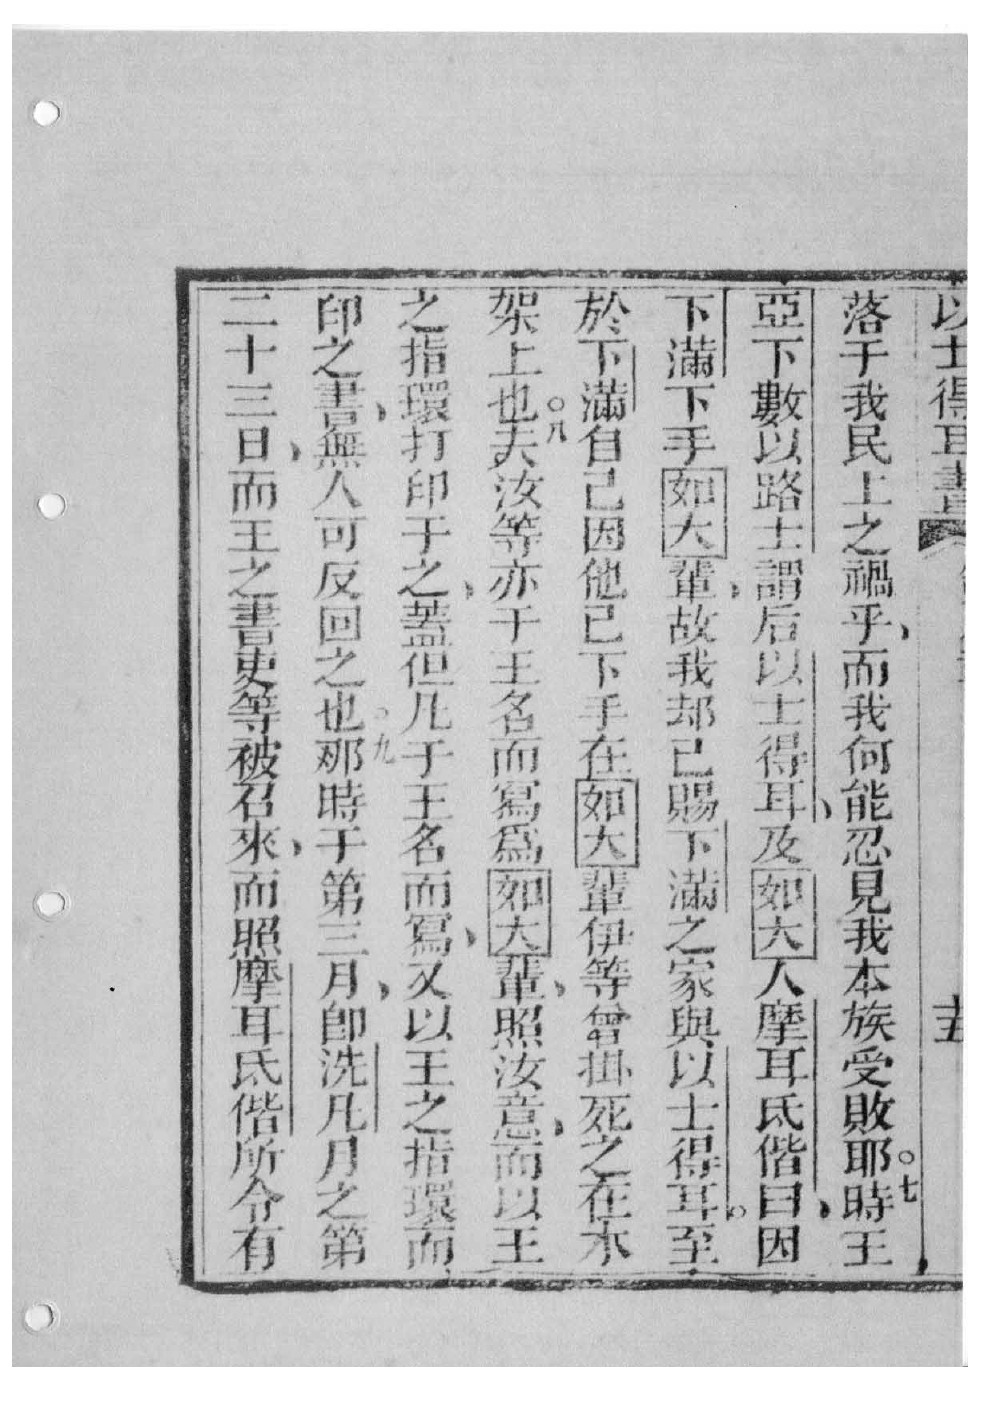 以士得耳書 十五
落于我民上之禍乎、而我何能忍見我本族受敗耶。七時王
亞下數以路士謂后以士得耳、及如大人摩耳氐偕曰、因
下滿下手如大輩、故我却已賜下滿之家與以士得耳。至
於下滿自己因他已下手在如大輩伊等曾掛死之在木
架上也。八夫汝等亦于王名而寫爲如大輩、照汝意、而以王
之指環打印于之、蓋但凡于王名而寫、又以王之指環而
印之書、無人可反回之也。九那時于第三月、卽洗凡月之第
二十三日、而王之書吏等被召來、而照摩耳氐偕所令有